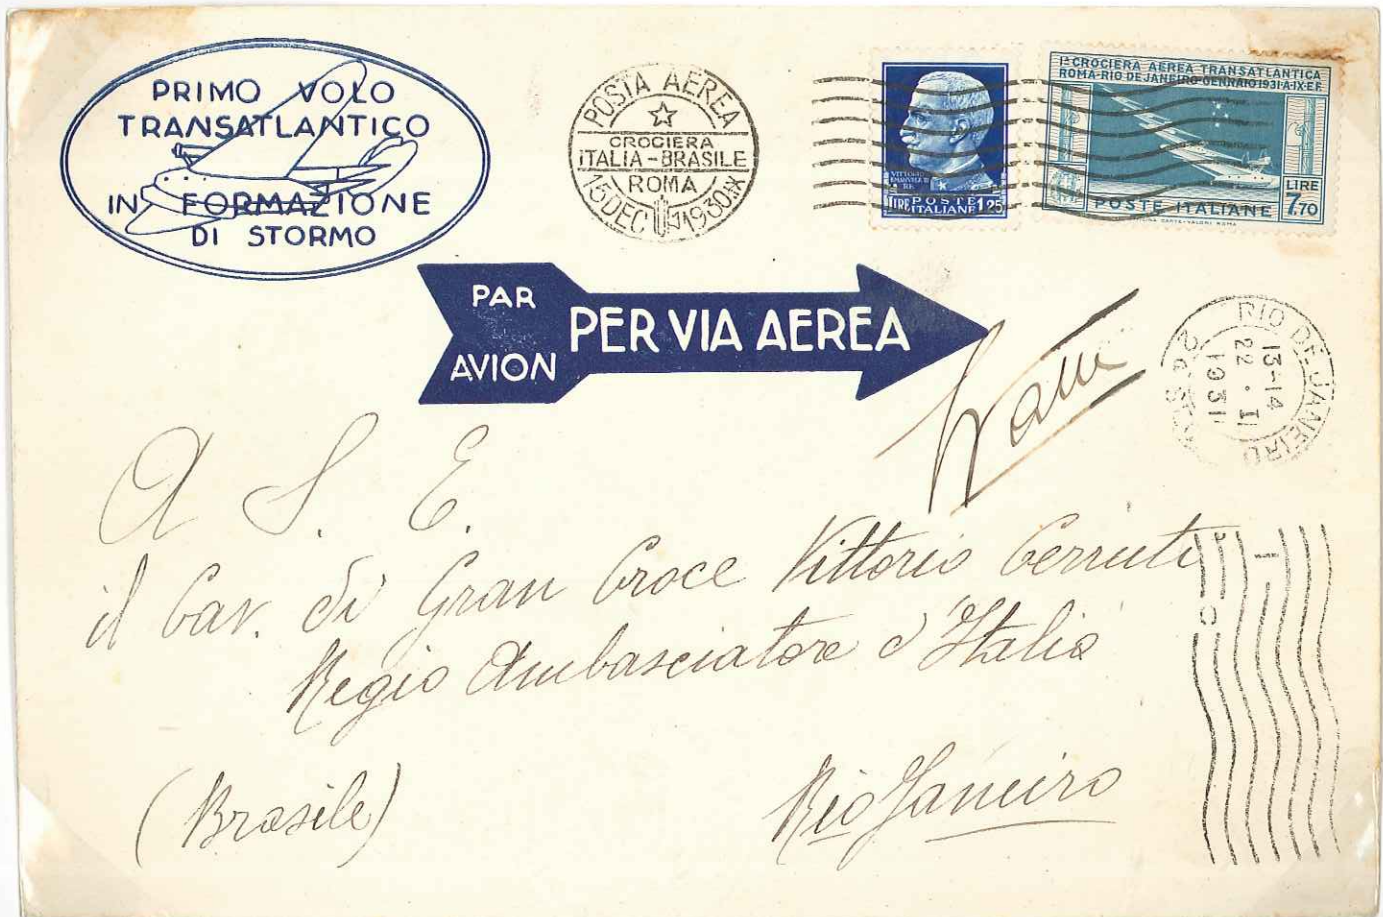 PRIMO VOLO
TRANSATLANTICO
IN FORMAZIONE
DI STORMO
POSTA AEREA
CROCIERA
ITALIA-BRASILE
ROMA
15 DEC 1930 IX
VITTORIO
EMANUELE III
RE
LIRE POSTE 1,25
ITALIANE
1ª CROCIERA AEREA TRANSATLANTICA
ROMA-RIO DE JANEIRO GENNAIO 1931-A-IX-E.F.
LIRE
7,70
POSTE ITALIANE
PAR
AVION
PER VIA AEREA
RIO DE JANEIRO
13-14
22 . II
1931
A S. E.
il Cav. di Gran Croce Vittorio Cerruti
Regio Ambasciatore d'Italia
Rio Janeiro
(Brasile)